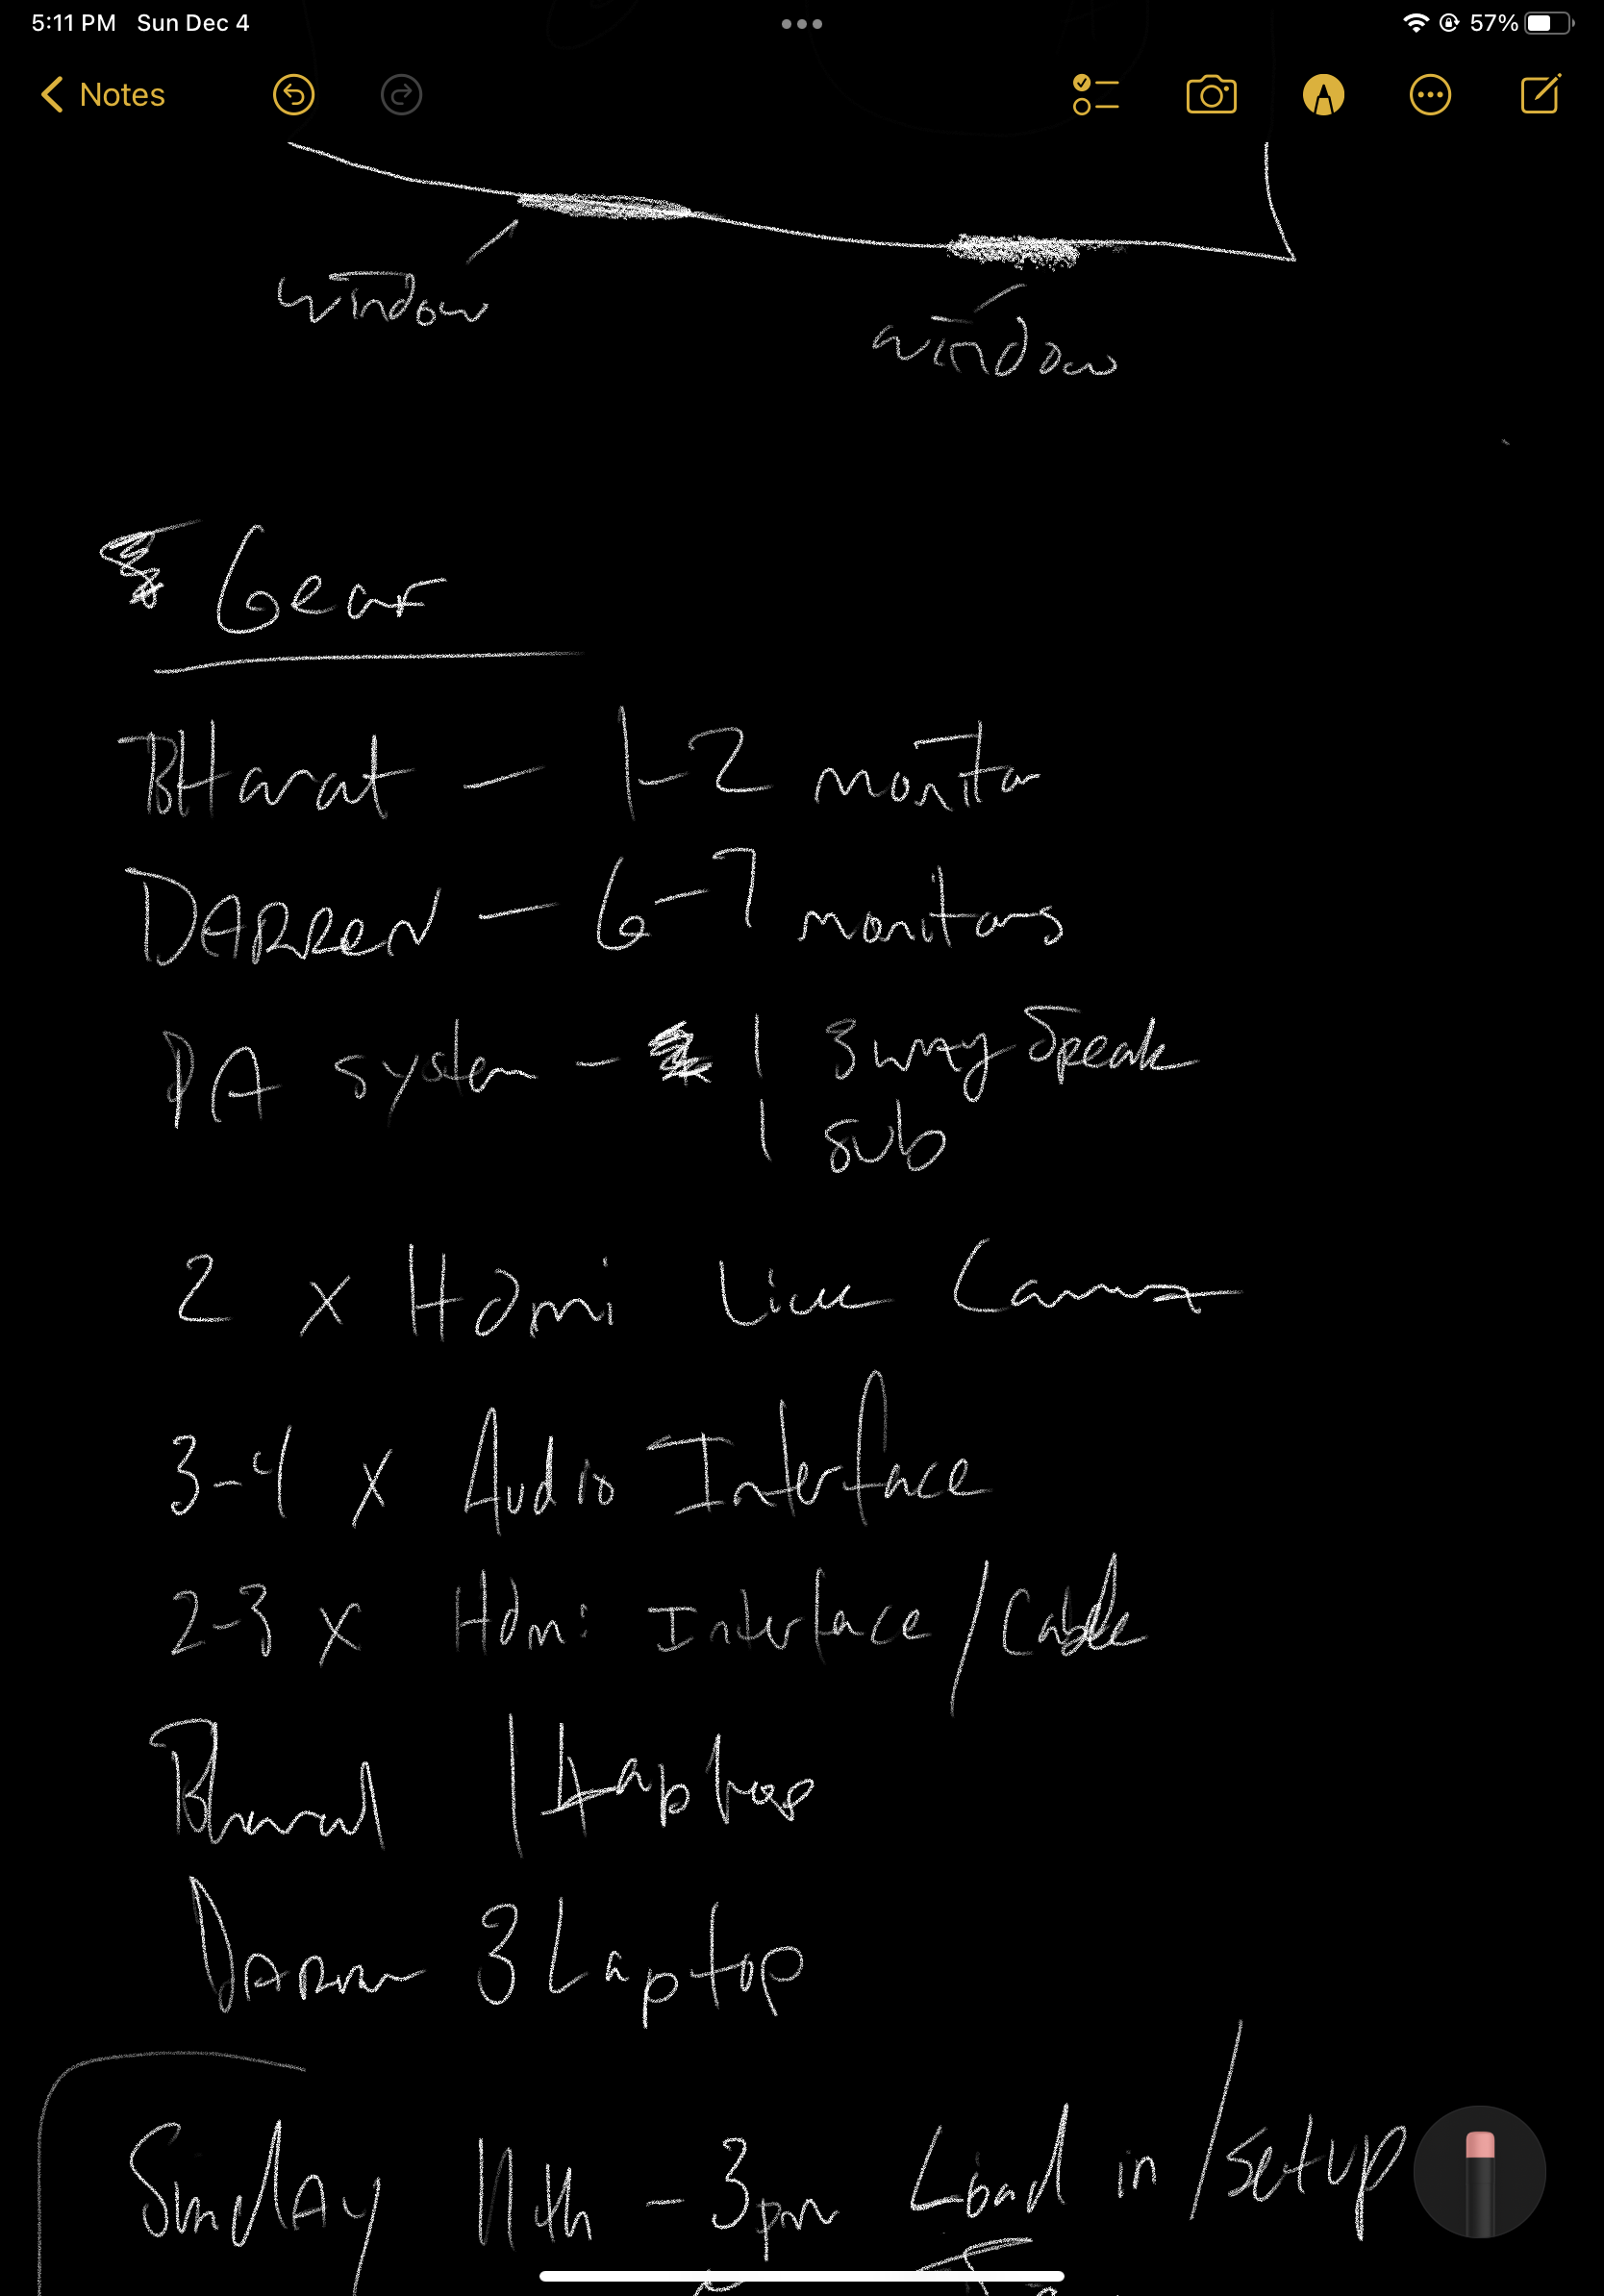 5:11 PM Sun Dec 4
57%
Notes
window
window
Gear
BHarat — 1-2 monitor
DARReN — 6-7 monitors
PA system - 1 3 way Speak
1 sub
2 x Hdmi Live Camera
3-4 x Audio Interface
2-3 x Hdmi Interface/Cable
Bharat 1 Laptop
DARren 3 Laptop
SundAy 11th - 3pm Load in /setup